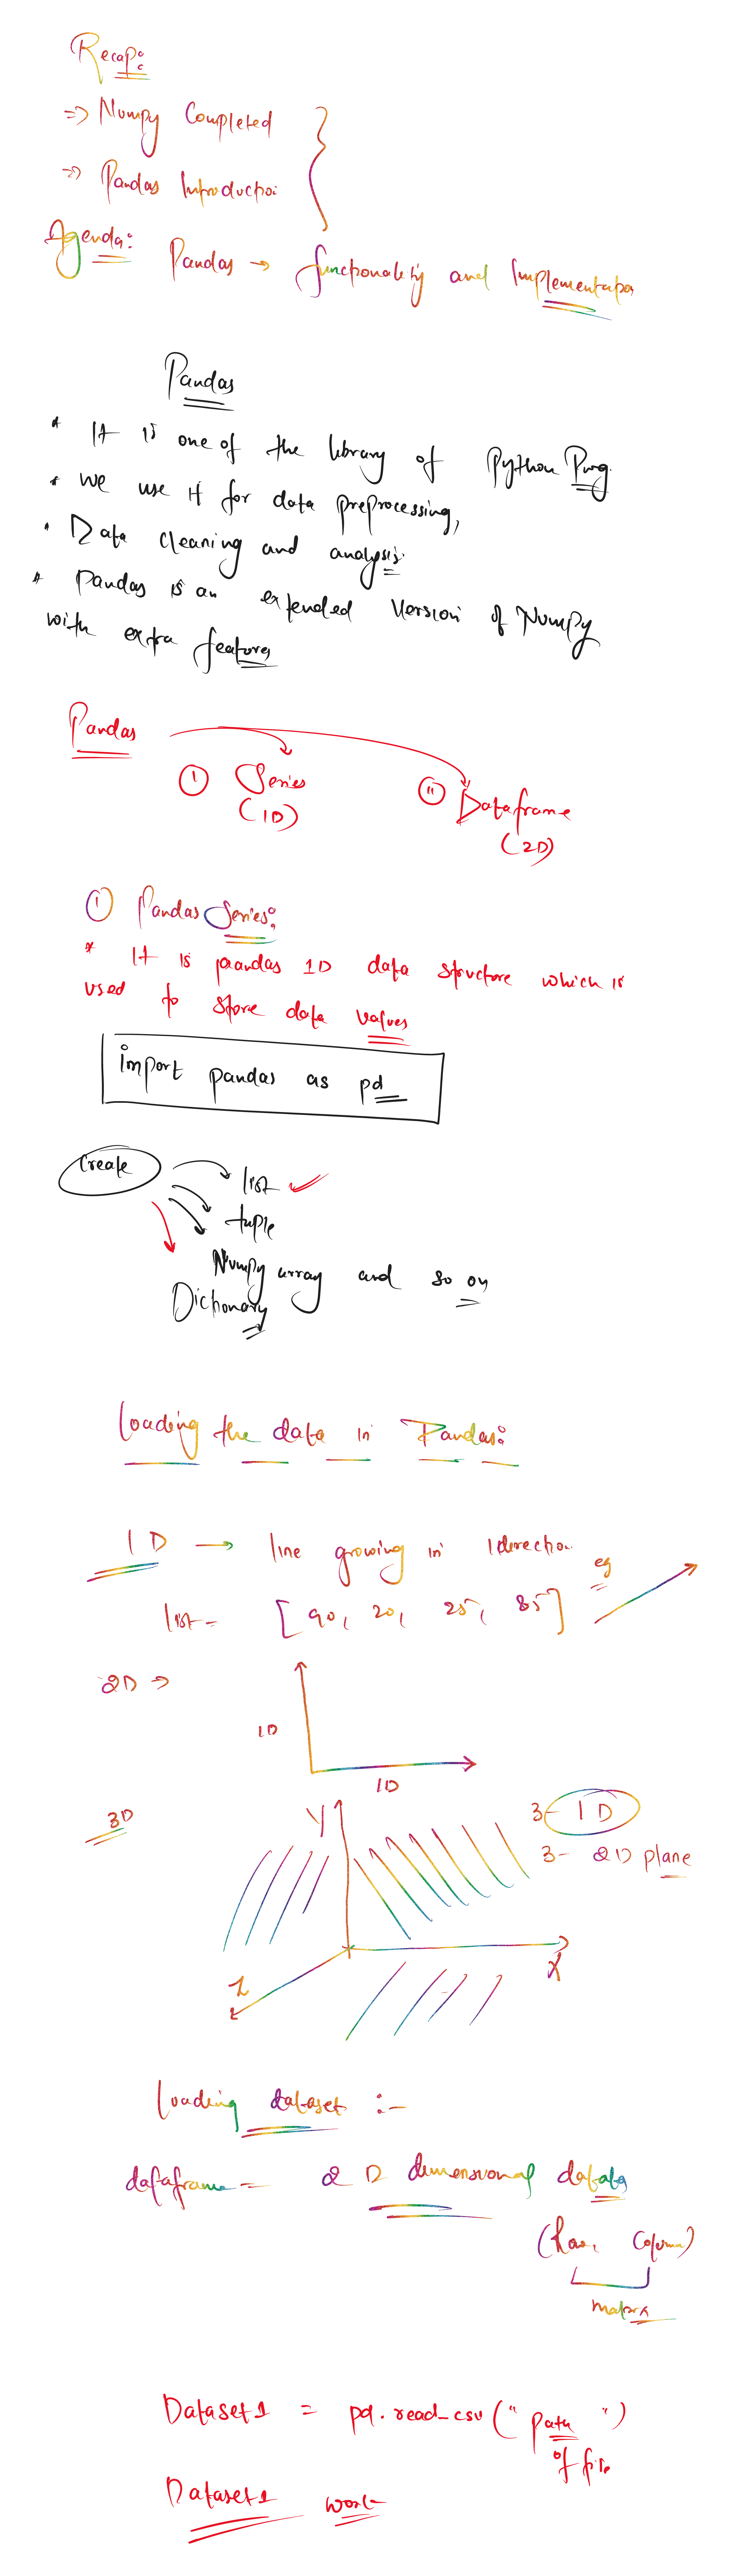 Recap:
=> Numpy Completed
=> Pandas Introductio
Agenda: Pandas → functionality and Implementation
Pandas
* It is one of the library of Python Prog.
* we use it for data preprocessing,
* Data cleaning and analysis.
* Pandas is an extended version of Numpy
with extra features
Pandas
① Series
(1D)
⑪ Dataframe
(2D)
① Pandas Series:
* It is paandas 1D data structure which is
used to store data values
import pandas as pd
Create
list ✓
tuple
Numpy array and so on
Dictionary
Loading the data in Pandas:
1D → line growing in 1direction eg
list = [90, 20, 25, 85]
2D →
1D
1D
3D
Y
3- 1D
3- 2D plane
Z
X
Loading dataset :-
dataframe = 2D dimensional datata
(Row, Column)
matrix
Dataset1 = pd.read_csv("path")
of file
Dataset1 work